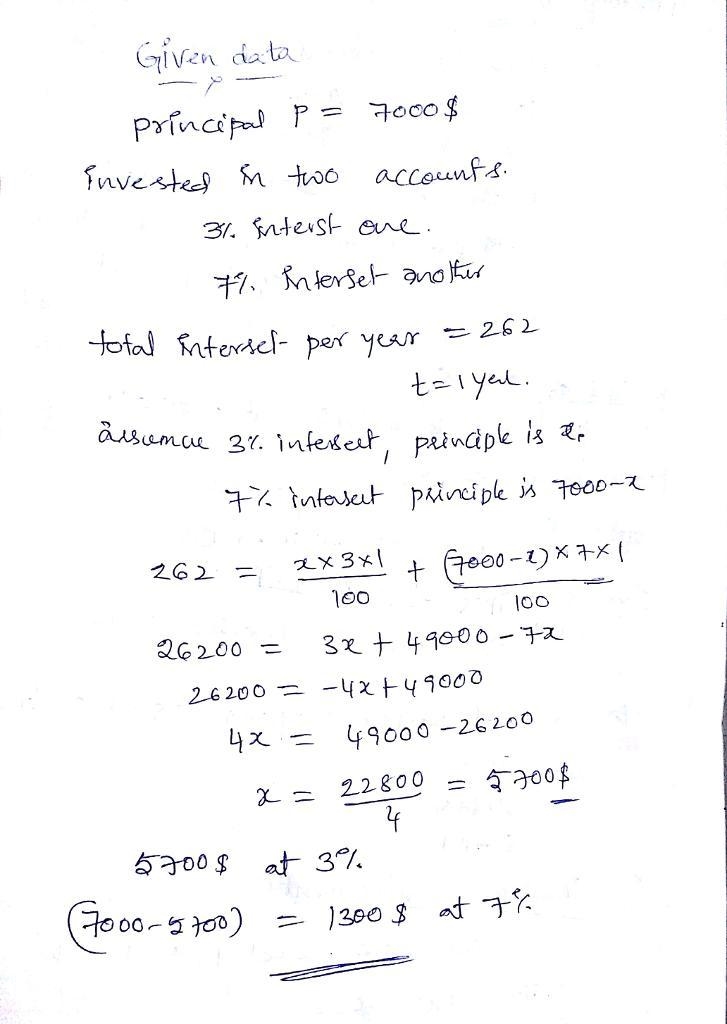 Given data
principal P = 7000$
invested in two accounts.
3% interst one.
7% interset another
total interset per year = 262
t=1 year.
assume 3% interest, principle is x.
7% interest principle is 7000-x
262 = x×3×1/100 + (7000-x)×7×1/100
26200 = 3x + 49000 - 7x
26200 = -4x+49000
4x = 49000-26200
x = 22800/4 = 5700$
5700$ at 3%
(7000-5700) = 1300$ at 7%